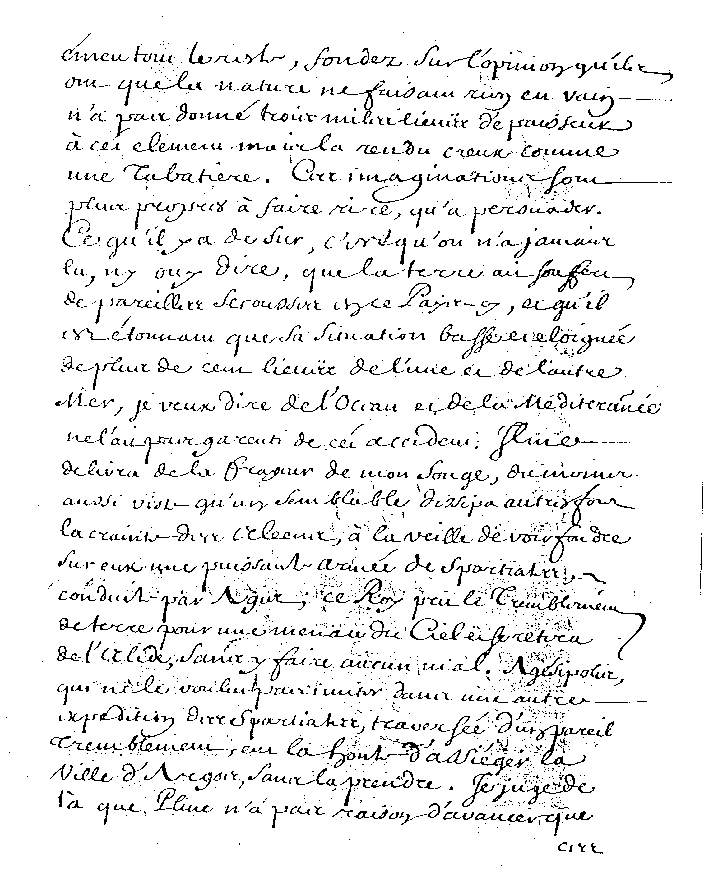 tout le reste, fondez sur l'opinion qu'ils
ont que la nature ne faisant rien en vain
n'a pas donné trois mille lieües de paisseur
à cet element mais la rendu creux comme
une Tabatiere. Ces imaginations sont
plus propres à faire rire, qu'a persuader.
Ce qu'il y a de sur, c'est qu'on n'a jamais
lu, ny ouy dire, que la terre ait souffert
de pareilles secousses en ce Pays-cy, et qu'il
est étonnant que sa situation basse et eloignée
de plus de cent lieües de l'une et de l'autre
Mer, je veux dire de l'Ocean et de la Mediteranée
ne l'ait pas garenti de cet accident. Il me
delivra de la frayeur de mon songe, du moins
aussi viste qu'un semblable dissipa autresfois
la crainte des Eleens, à la veille de voir fondre
sur eux une puissante armée de Spartiates,
conduit par Agis; ce Roy prit le Tremblement
de terre pour une menace du Ciel et se retira
de l'Elide, sans y faire aucun mal. Agesipolis,
qui ne le voulut pas imiter dans une autre
expedition des Spartiates, traversée d'un pareil
Tremblement, eut la honte d'assiéger la
Ville d'Argos, sans la prendre. Je juge de
là que Pline n'a pas raison d'avancer que
ces